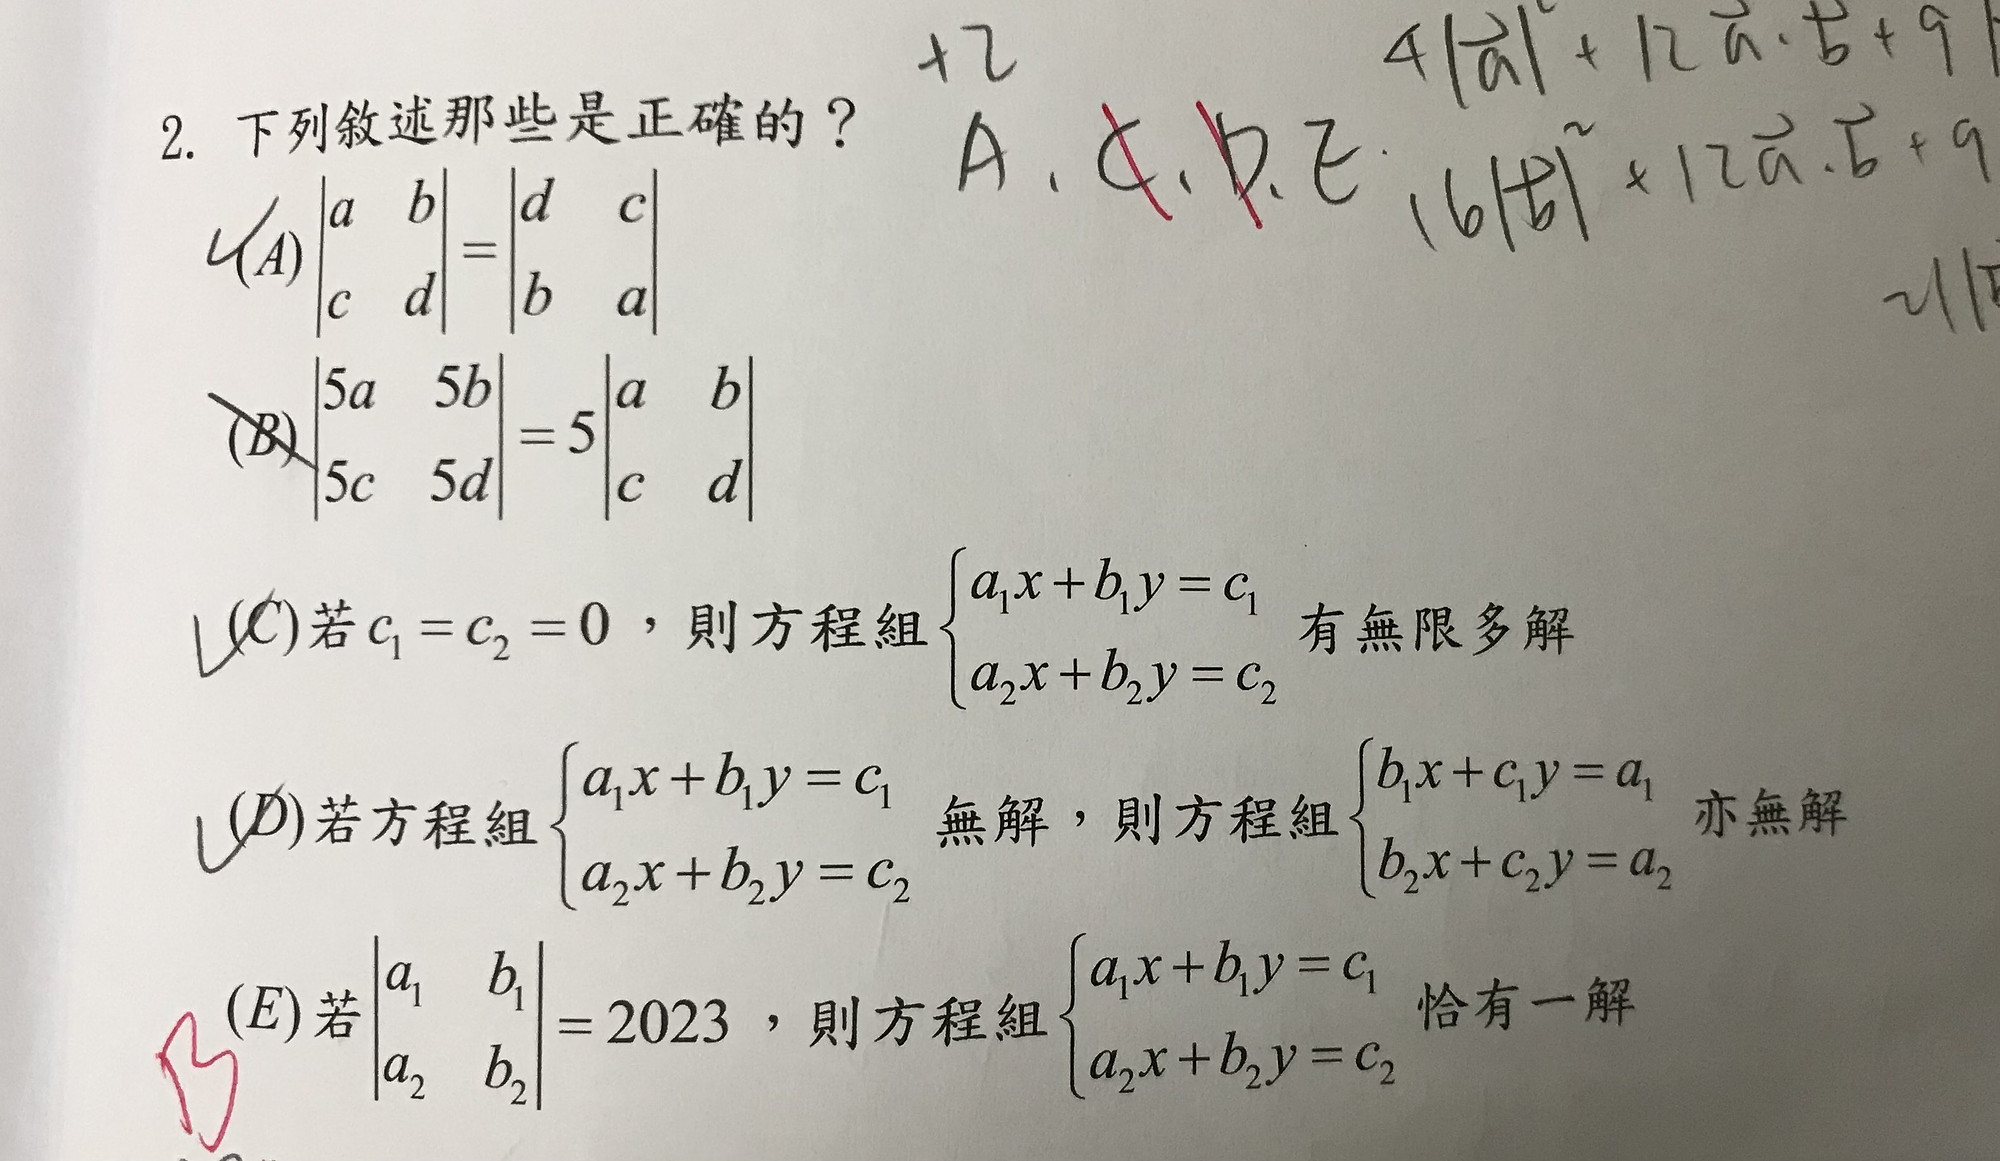 +2
4|a⃗|² + 12 a⃗·b⃗ + 9
2. 下列敘述那些是正確的？
A. C. D. E.
16|b⃗|² + 12 a⃗·b⃗ + 9
(A) |a b; c d| = |d c; b a|
(B) |5a 5b; 5c 5d| = 5 |a b; c d|
(C) 若 c₁ = c₂ = 0 ，則方程組 { a₁x + b₁y = c₁ ; a₂x + b₂y = c₂ 有無限多解
(D) 若方程組 { a₁x + b₁y = c₁ ; a₂x + b₂y = c₂ 無解，則方程組 { b₁x + c₁y = a₁ ; b₂x + c₂y = a₂ 亦無解
(E) 若 |a₁ b₁; a₂ b₂| = 2023 ，則方程組 { a₁x + b₁y = c₁ ; a₂x + b₂y = c₂ 恰有一解